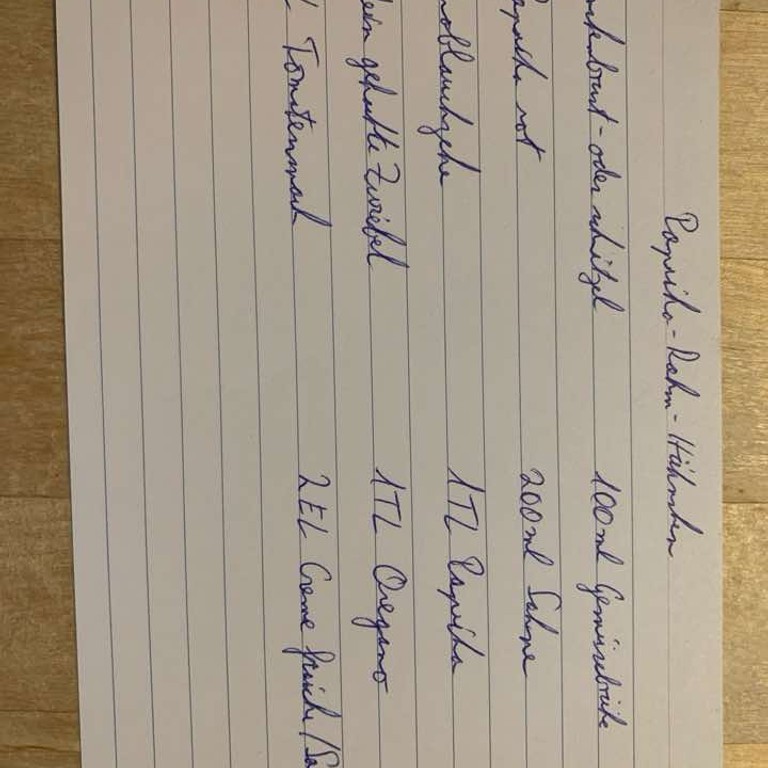 Paprika-Rahm-Hähnchen
oder schnitzel 100ml Gemüsebrühe
rot 200ml Sahne
1TL Paprika
gehackte Zwiebel 1TL Oregano
Tomatenmark 2EL Creme fraiche/